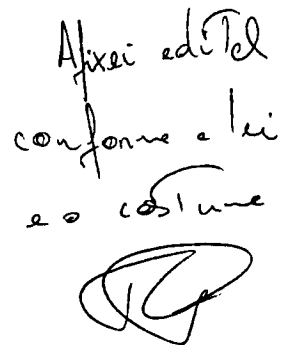 Afixei edital
conforme a lei
e o costume